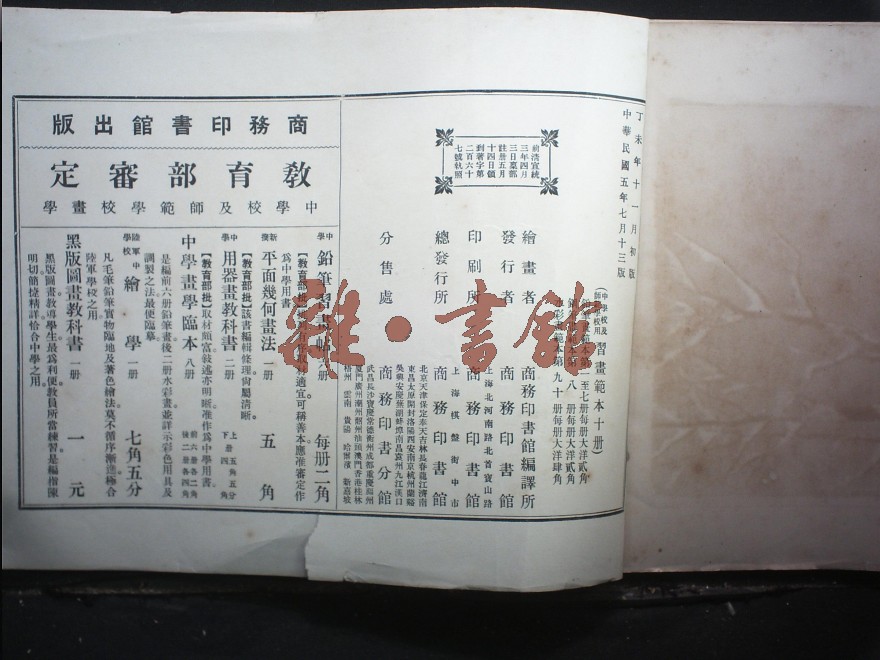 丁未年十一月初版
中華民國五年七月十三版
中學校及師範學校用
習畫範本十册
至七册每册大洋貳角
第八
册每册大洋貳角
本第九十
册每册大洋肆角
前清宣統
三年四月
三日稟部
註册五月
十四日領
到著字第
二百六十
七號執照
繪畫者
商務印書館編譯所
發行者
商務印書館
印刷所
上海北河南路北首寶山路
商務印書館
總發行所
上海棋盤街中市
商務印書館
分售處
商務印書分館
北京天津保定奉天吉林長春龍江濟南
東昌太原開封洛陽西安南京杭州蘭谿
吳興安慶蕪湖蚌埠南昌袁州九江漢口
武昌長沙寶慶常德衡州成都重慶福州
廈門廣州潮州韶州汕頭澳門香港桂林
梧州 雲南 貴陽 哈爾濱 新嘉坡
商務印書館出版
教育部審定
中學校及師範學校畫學
中學
鉛筆習畫帖
六册
每册二角
【教育部批】
適宜可稱善本應准審定作
爲中學用書。
新撰
平面幾何畫法
一册
五角
【教育部批】該書編輯條理尙屬清晰。
中學
用器畫教科書
二册
上册五角五分
下册四角
【教育部批】取材頗富敍述亦明晰准作爲中學用書。
中學畫學臨本
八册
前六册各二角
後二册各四角
是編前六册鉛筆畫後二册水彩畫並詳示彩色用具及
調製之法最便臨摹。
陸軍中學校
繪學
一册
七角五分
凡毛筆鉛筆實物臨地及著色繪法莫不循序漸進極合
陸軍學校之用
黑版圖畫教科書
一册
一元
黑版圖畫教導學生最爲利便教員所當練習是編指陳
明切簡捷精詳恰合中學之用。
雜·書館